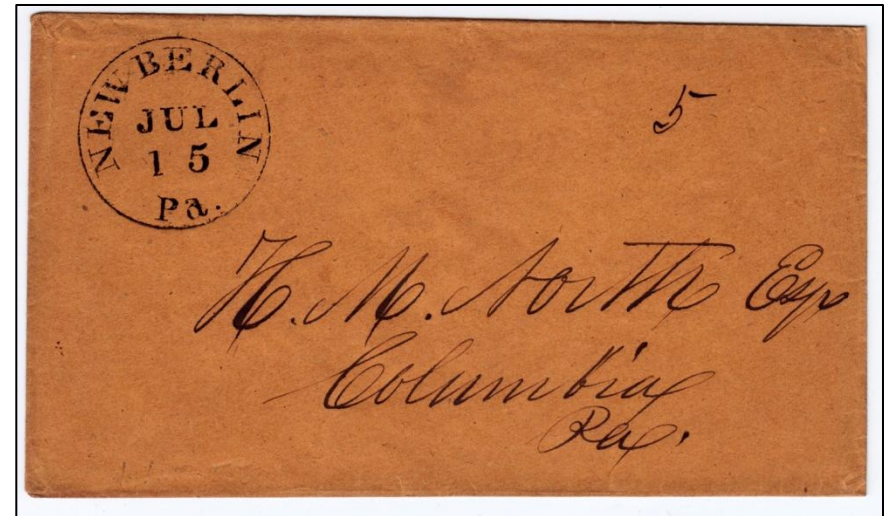 NEW BERLIN
JUL
15
Pa.
5
H. M. North Esqr
Columbia
Pa.